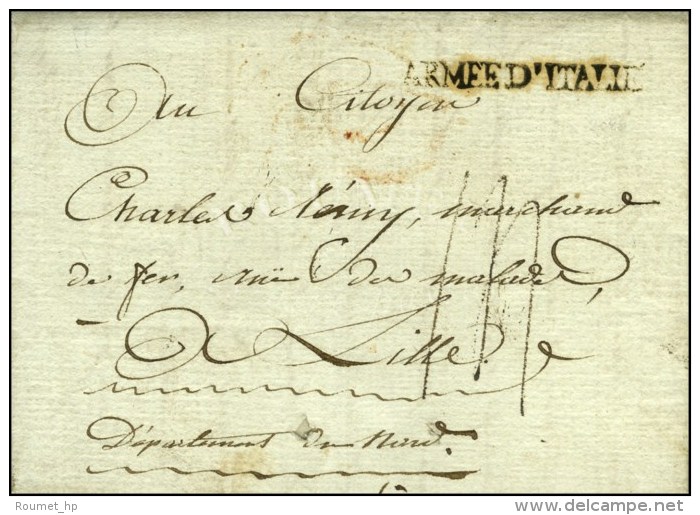 ARMEE D'ITALIE
Au Citoyen
Charles Rémy, marchand
de fer, ruë des malades,
A Lille
Département du Nord.
Roumet_hp
delcampe.net